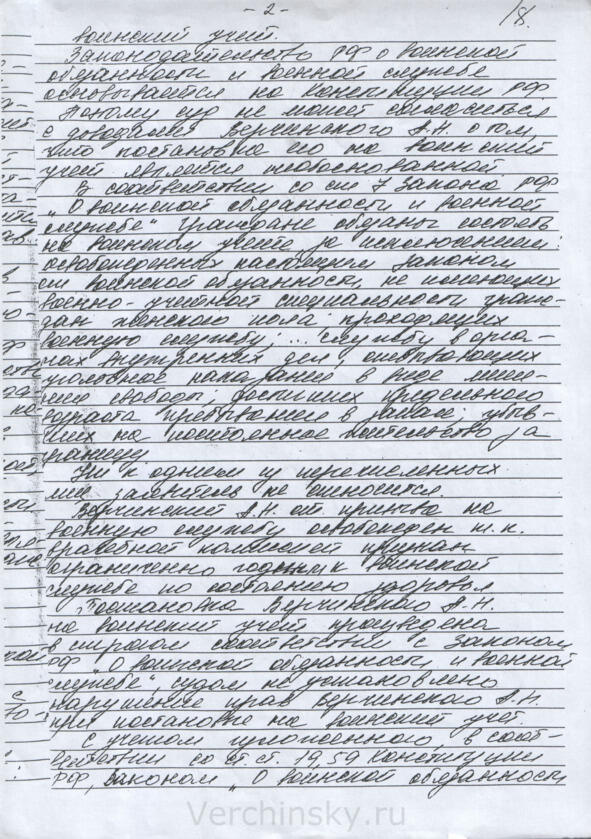 - 2 -
18.
воинский учет.
Законодательство РФ о воинской
обязанности и военной службе
основывается на Конституции РФ
Поэтому суд не может согласиться
с доводами Верчинского А.Н. о том,
что постановка его на воинский
учет является необоснованной
В соответствии со ст 7 Закона РФ
„О воинской обязанности и военной
службе" граждане обязаны состоять
на воинском учете за исключением:
освобожденных настоящим законом
от воинской обязанности, не имеющих
военно-учетной специальности граж-
дан женского пола; проходящих
военную службу; ... службу в орга-
нах внутренних дел, отбывающих
уголовное наказание в виде лише-
ния свободы; достигших предельного
возраста пребывания в запасе; убыв-
ших на постоянное жительство за
границу
Ни к одному из перечисленных
лиц заявитель не относится.
Верчинский А.Н. от призыва на
военную службу освобожден т.к.
врачебной комиссией признан
ограниченно годным к воинской
службе по состоянию здоровья
Постановка Верчинского А.Н.
на воинский учет произведена
в строгом соответствии с Законом
РФ „О воинской обязанности и военной
службе", судом не установлено
нарушение прав Верчинского А.Н.
при постановке на воинский учет.
С учетом изложенного, в соот-
ветствии со ст.ст. 19, 59 Конституции
РФ, Законом „О воинской обязанности
Verchinsky.ru